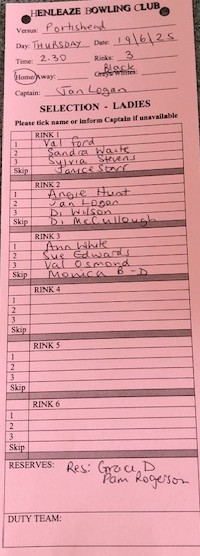 HENLEAZE BOWLING CLUB
Versus: Portishead
Day: THURSDAY Date: 19/6/25
Time: 2.30 Rinks: 3
Home/Away: Greys/Whites: Black
Captain: Jan Logan
SELECTION - LADIES
Please tick name or inform Captain if unavailable
RINK 1
1 Val Ford
2 Sandra Waite
3 Sylvia Stevens
Skip Janice Starr
RINK 2
1 Angie Hunt
2 Jan Logan
3 Di Wilson
Skip Di McCullough
RINK 3
1 Ann White
2 Sue Edwards
3 Val Osmond
Skip Monica B-D
RINK 4
1
2
3
Skip
RINK 5
1
2
3
Skip
RINK 6
1
2
3
Skip
RESERVES: Res: Grace D
Pam Rogerson
DUTY TEAM: